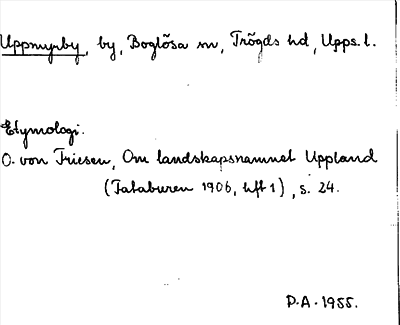 Uppmyrby, by, Boglösa sn, Trögds hd, Upps. l.
Etymologi.
O. von Friesen, Om landskapsnamnet Uppland
(Fataburen 1906, hft 1), s. 24.
P.A. 1955.